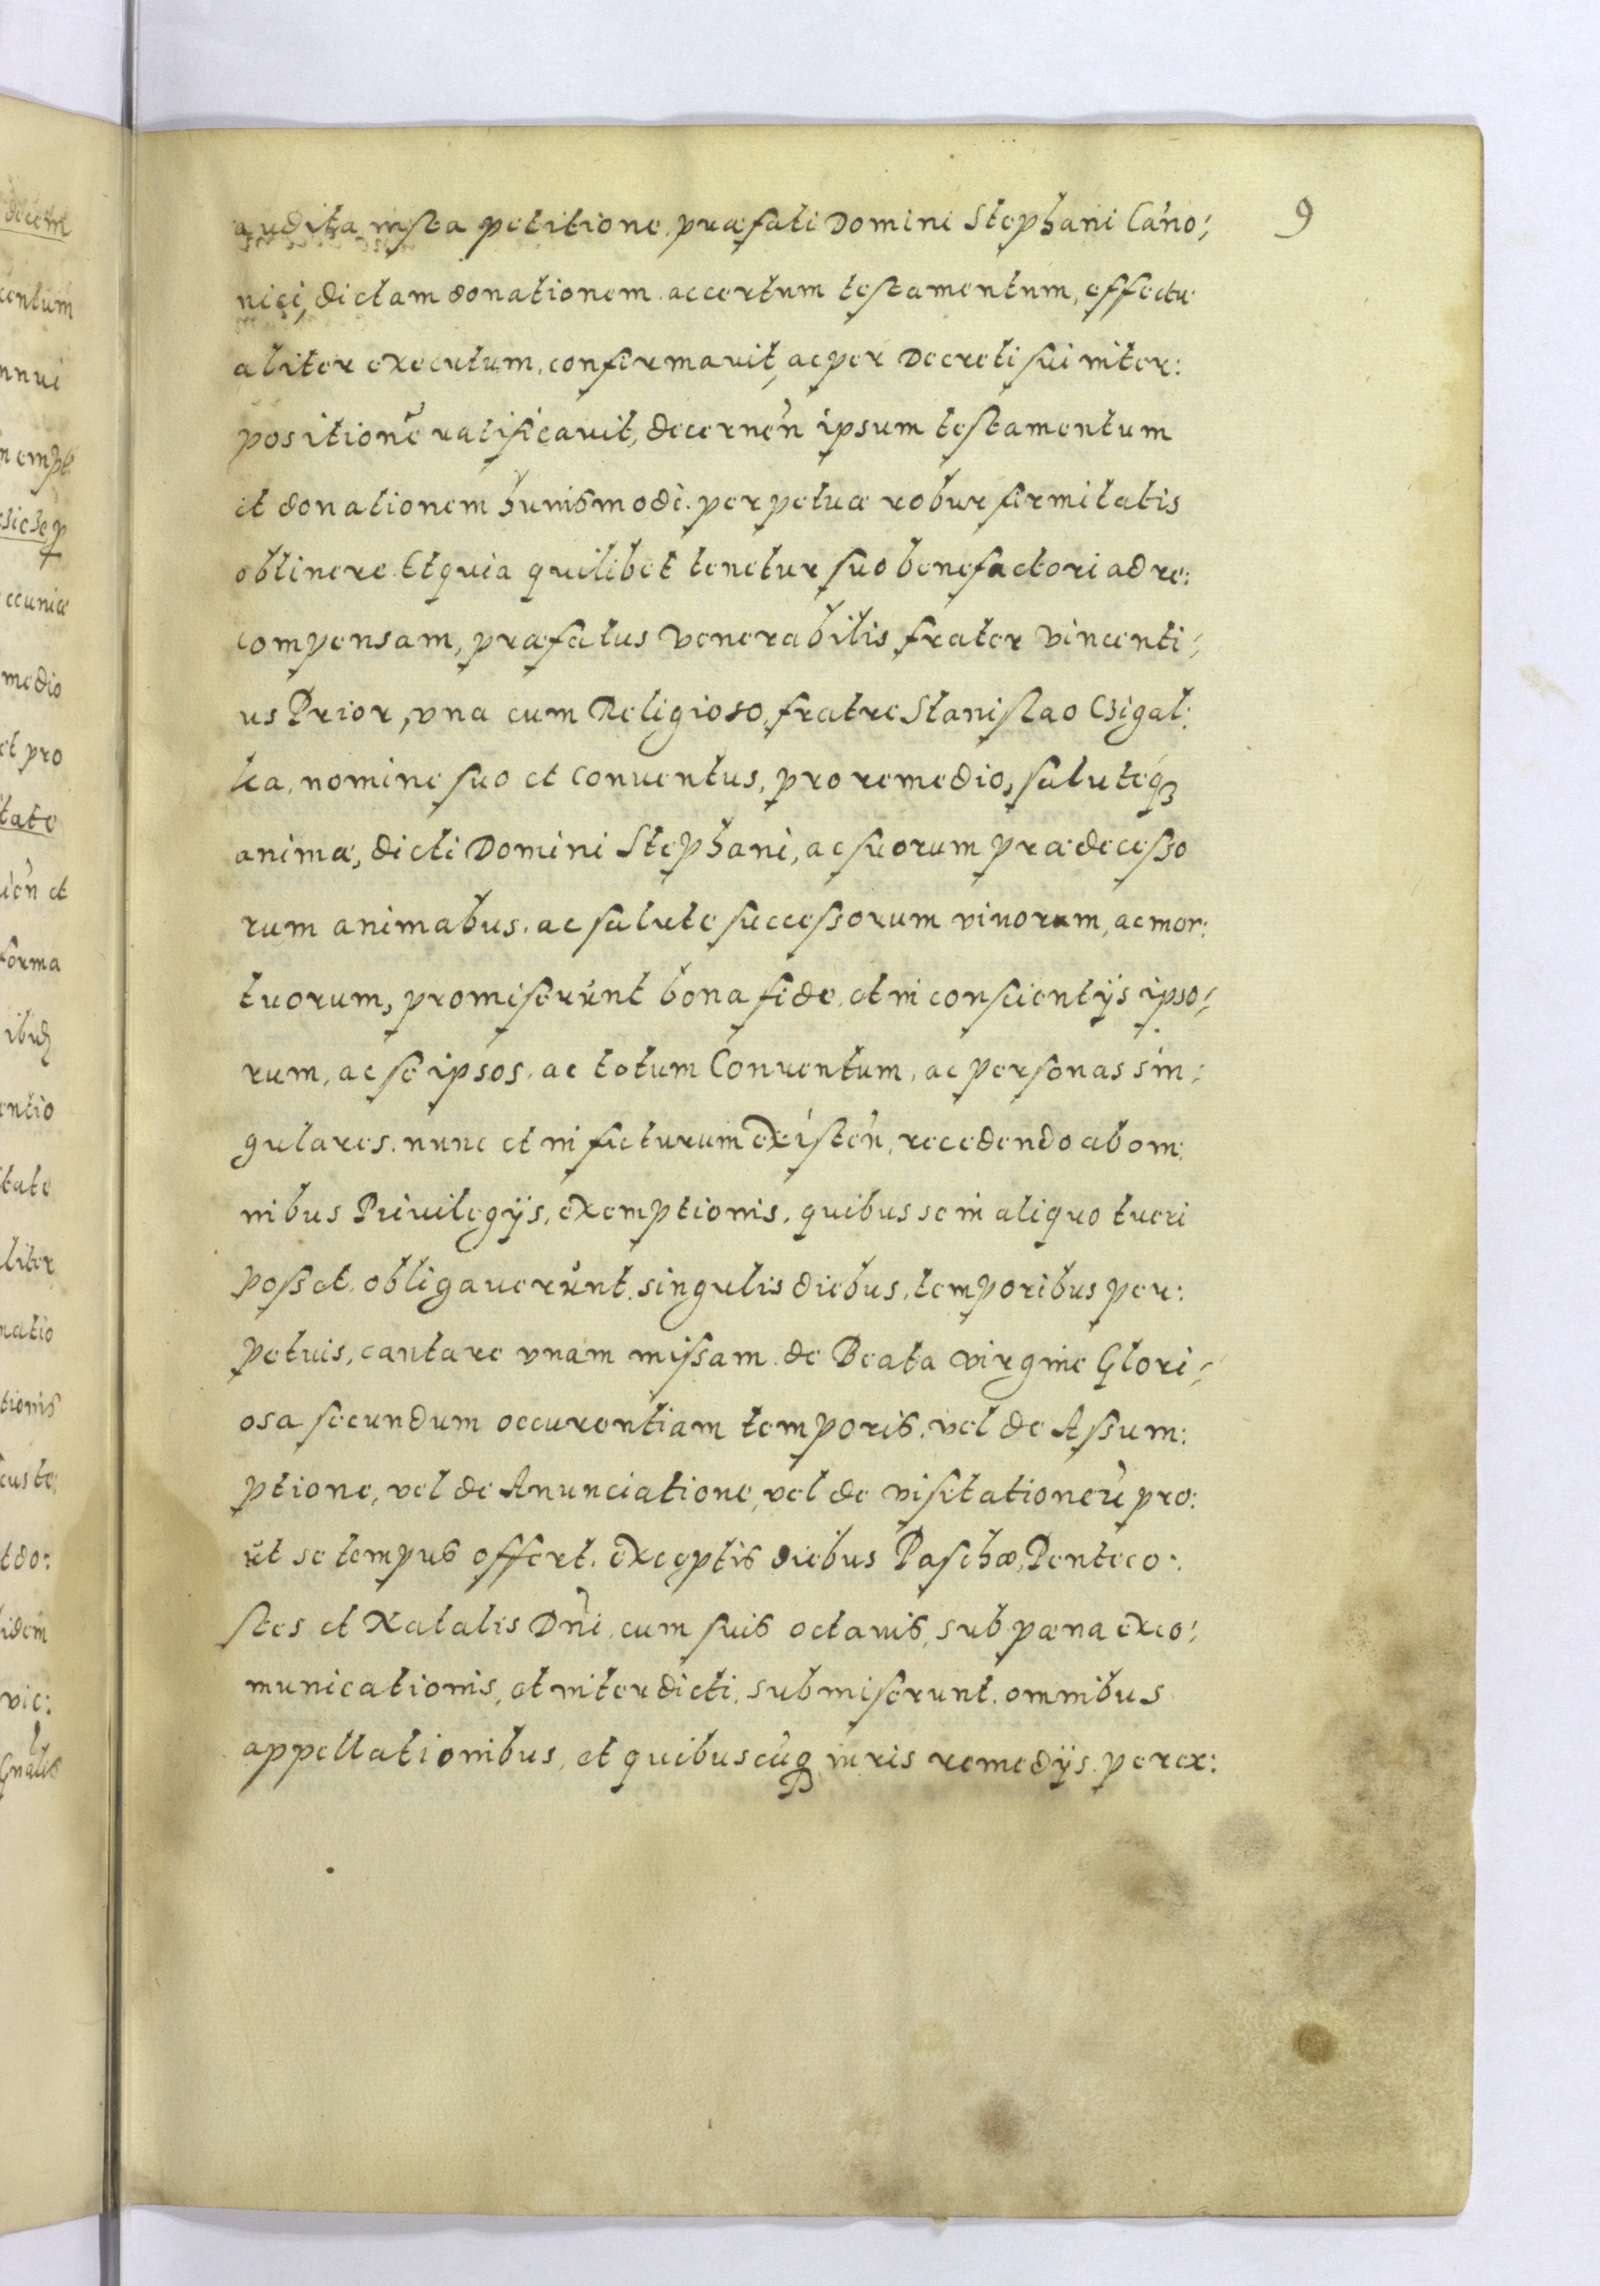 9
audita iusta petitione, præfati Domini Stephani Cano:
nici, dictam donationem. ac certum testamentum, effectu
aliter executum, confirmavit, ac per Decreti sui inter:
positionē ratificavit, decernen̄ ipsum testamentum
et donationem huiusmodi. perpetuæ robur firmitatis
obtinere. Et quia quilibet tenetur suo benefactori ad re:
compensam, præfatus venerabilis frater Vincenti:
us Prior, vna cum Religioso, fratre Stanislao Czigal:
ka, nomine suo et Conuentus, pro remedio, saluteq3
animæ, dicti Domini Stephani, ac suorum prædecesso
rum animabus. ac salute successorum viuorum, ac mor:
tuorum, promiserŭnt bona fide. et in conscientijs ipso:
rum, ac se ipsos. ac totum Conuentum, ac personas sin:
gulares. nunc et in futurum existen̄, recedendo ab om:
nibus Priuilegijs, exemptionis, quibus se in aliquo tueri
posset. obligauerŭnt. singulis diebus, temporibus per:
petuis, cantare vnam missam. de Beata virgine Glori:
osa secundum occurentiam temporis, vel de Assum:
ptione, vel de Anunciatione, vel de visitatione ŭ pro:
ŭt se tempus offert. exceptis diebus Paschæ, Penteco:
stes et Natalis Dn̄i, cum suis octauis, sub pæna exco:
municationis, et interdicti, submiserunt. omnibus
appellationibus, et quibuscūq3 iuris remedijs. per ex: